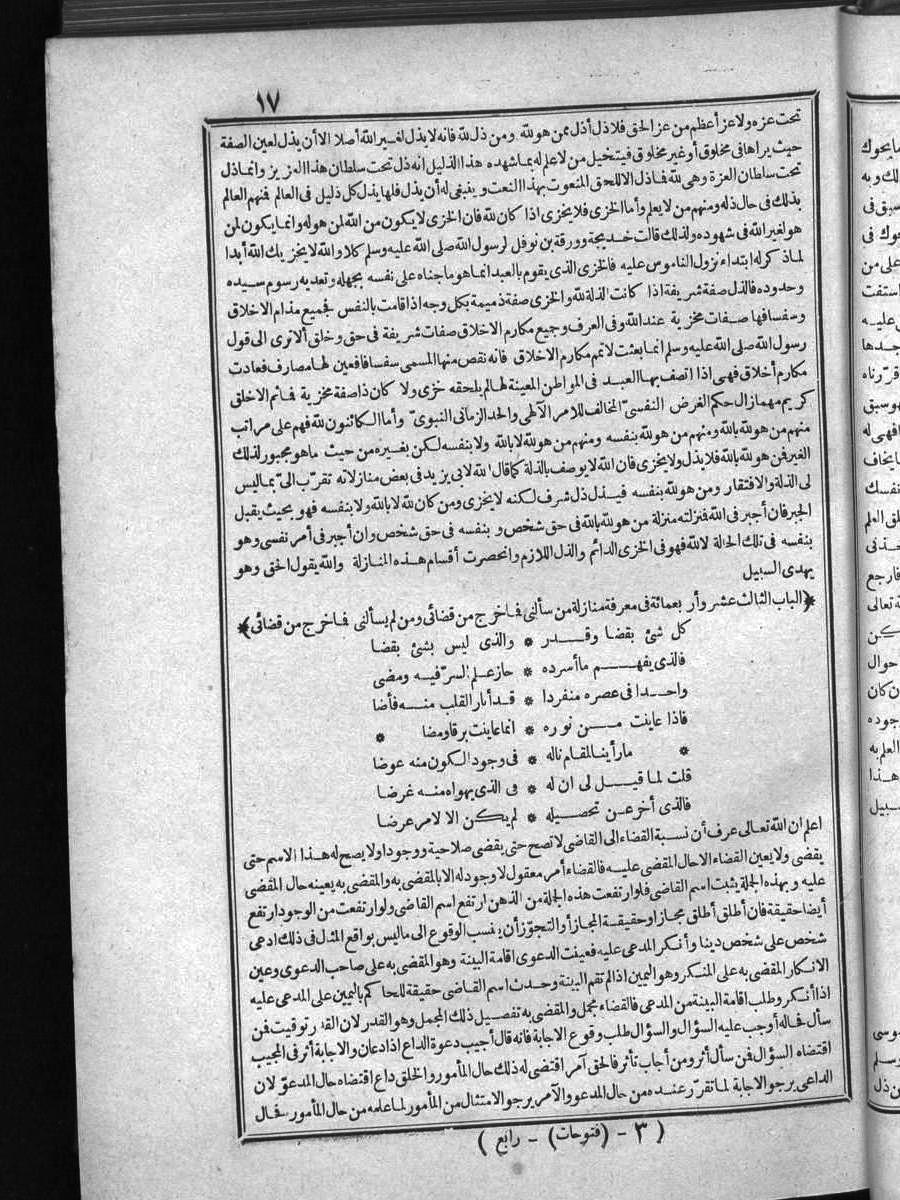 ١٧
تحت عزه ولا عز أعظم من عز الحق فلا ذل أذل ممن هو لله ومن ذل لله فانه لا يذل لغير الله أصلا الا أن يذل لعين الصفة
حيث يراها فى مخلوق أو غير مخلوق فيتخيل من لا علم له بما شهده هذا الذليل انه ذل تحت سلطان هذا العزيز وانما ذل
تحت سلطان العزة وهى لله فما ذل الا للحق المنعوت بهذا النعت وينبغى له أن يذل فلها يذل كل ذليل فى العالم فمنهم العالم
بذلك فى حال ذله ومنهم من لا يعلم وأما الخزى فلا يخزى اذا كان لله فان الخزى لا يكون من الله لمن هو له وانما يكون لمن
هو لغير الله فى شهوده ولذلك قالت خديجة وورقة بن نوفل لرسول الله صلى الله عليه وسلم كلا والله لا يخزيك الله أبدا
لما ذكر له ابتداء نزول الناموس عليه فالخزى الذى يقوم بالعبد انما هو ما جناه على نفسه بجهله وتعديه رسوم سيده
وحدوده فالذل صفة شريفة اذا كانت الذلة لله والخزى صفة ذميمة بكل وجه اذا قامت بالنفس فجميع مذام الاخلاق
وسفسافها صفات مخزية عند الله وفى العرف وجميع مكارم الاخلاق صفات شريفة فى حق وخلق ألا ترى الى قول
رسول الله صلى الله عليه وسلم انما بعثت لاتمم مكارم الاخلاق فانه نقص منها المسمى سفسافا فعين لها مصارف فعادت
مكارم أخلاق فهى اذا اتصف بها العبد فى المواطن المعينة لها لم يلحقه خزى ولا كان ذا صفة مخزية فما ثم الا خلق
كريم مهما زال حكم الغرض النفسىّ المخالف للامر الالهى والحد الزمانى النبوىّ وأما الكائنون لله فهم على مراتب
منهم من هو لله بالله ومنهم من هو لله بنفسه ومنهم من هو لله لا بالله ولا بنفسه لكن بغيره من حيث ما هو مجبور لذلك
الغير فمن هو لله بالله فلا يذل ولا يخزى فان الله لا يوصف بالذلة كما قال الله لابى يزيد فى بعض منازلاته تقرّب الىّ بما ليس
لى الذلة والافتقار ومن هو لله بنفسه فيذل ذل شرف لكنه لا يخزى ومن كان لله لا بالله ولا بنفسه فهو بحيث يقبل
الجبر فان أجبر فى الله فمنزلته منزلة من هو لله بالله فى حق شخص وبنفسه فى حق شخص وان أجبر فى أمر نفسى وهو
بنفسه فى تلك الحالة لا لله فهو فى الخزى الدائم والذل اللازم وانحصرت أقسام هذه المنازلة والله يقول الحق وهو
يهدى السبيل
﴿الباب الثالث عشر وأربعمائة فى معرفة منازلة من سألنى فما خرج من قضائى ومن لم يسألنى فما خرج من قضائى﴾
كل شئ بقضا وقدر * والذى ليس بشئ بقضا
فالذى يفهم ما أسرده * حاز علم السرّ فيه ومضى
واحدا فى عصره منفردا * قد أنار القلب منه فأضا
فاذا عاينت من نوره * انما عاينت برقا ومضا *
* ما رأينا لمقام ناله * فى وجود الكون منه عوضا
قلت لما قيل لى ان له * فى الذى يهواه منه غرضا
فالذى أخر عن تحصيله * لم يكن الا لامر عرضا
اعلم ان الله تعالى عرف أن نسبة القضاء الى القاضى لا تصح حتى يقضى صلاحية ووجودا ولا يصح له هذا الاسم حتى
يقضى ولا يعين القضاء الا حال المقضى عليه فالقضاء أمر معقول لا وجود له الا بالمقضى به والمقضى به يعينه حال المقضى
عليه وبهذه الجلة يثبت اسم القاضى فلو ارتفعت هذه الجلة من الذهن ارتفع اسم القاضى ولو ارتفعت من الوجود ارتفع
أيضا حقيقة فان أطلق أطلق مجازا وحقيقة المجاز أو التجوّز أن ينسب الوقوع الى ما ليس بواقع المثل فى ذلك ادعى
شخص على شخص دينا وأنكر المدعى عليه فعينت الدعوى اقامة البينة وهو المقضى به على صاحب الدعوى وعين
الانكار المقضى به على المنكر وهو اليمين اذا لم تقم البينة وحدث اسم القاضى حقيقة للحاكم باليمين على المدعى عليه
اذا أنكر وطلب اقامة البينة من المدعى فالقضاء مجمل والمقضى به تفصيل ذلك المجمل وهو القدر لان القدر توقيت فمن
سأل فحاله أوجب عليه السؤال والسؤال طلب وقوع الاجابة فانه قال أجيب دعوة الداع اذا دعان والاجابة أثر فى المجيب
اقتضاه السؤال فمن سأل أثر ومن أجاب تأثر فالحق آمر اقتضى له ذلك حال المأمور والخلق داع اقتضاه حال المدعوّ لان
الداعى يرجو الاجابة لما تقرّر عنده من حال المدعو والآمر يرجو الامتثال من المأمور لما علمه من حال المأمور فحال
( ٣ - (فتوحات) - رابع )